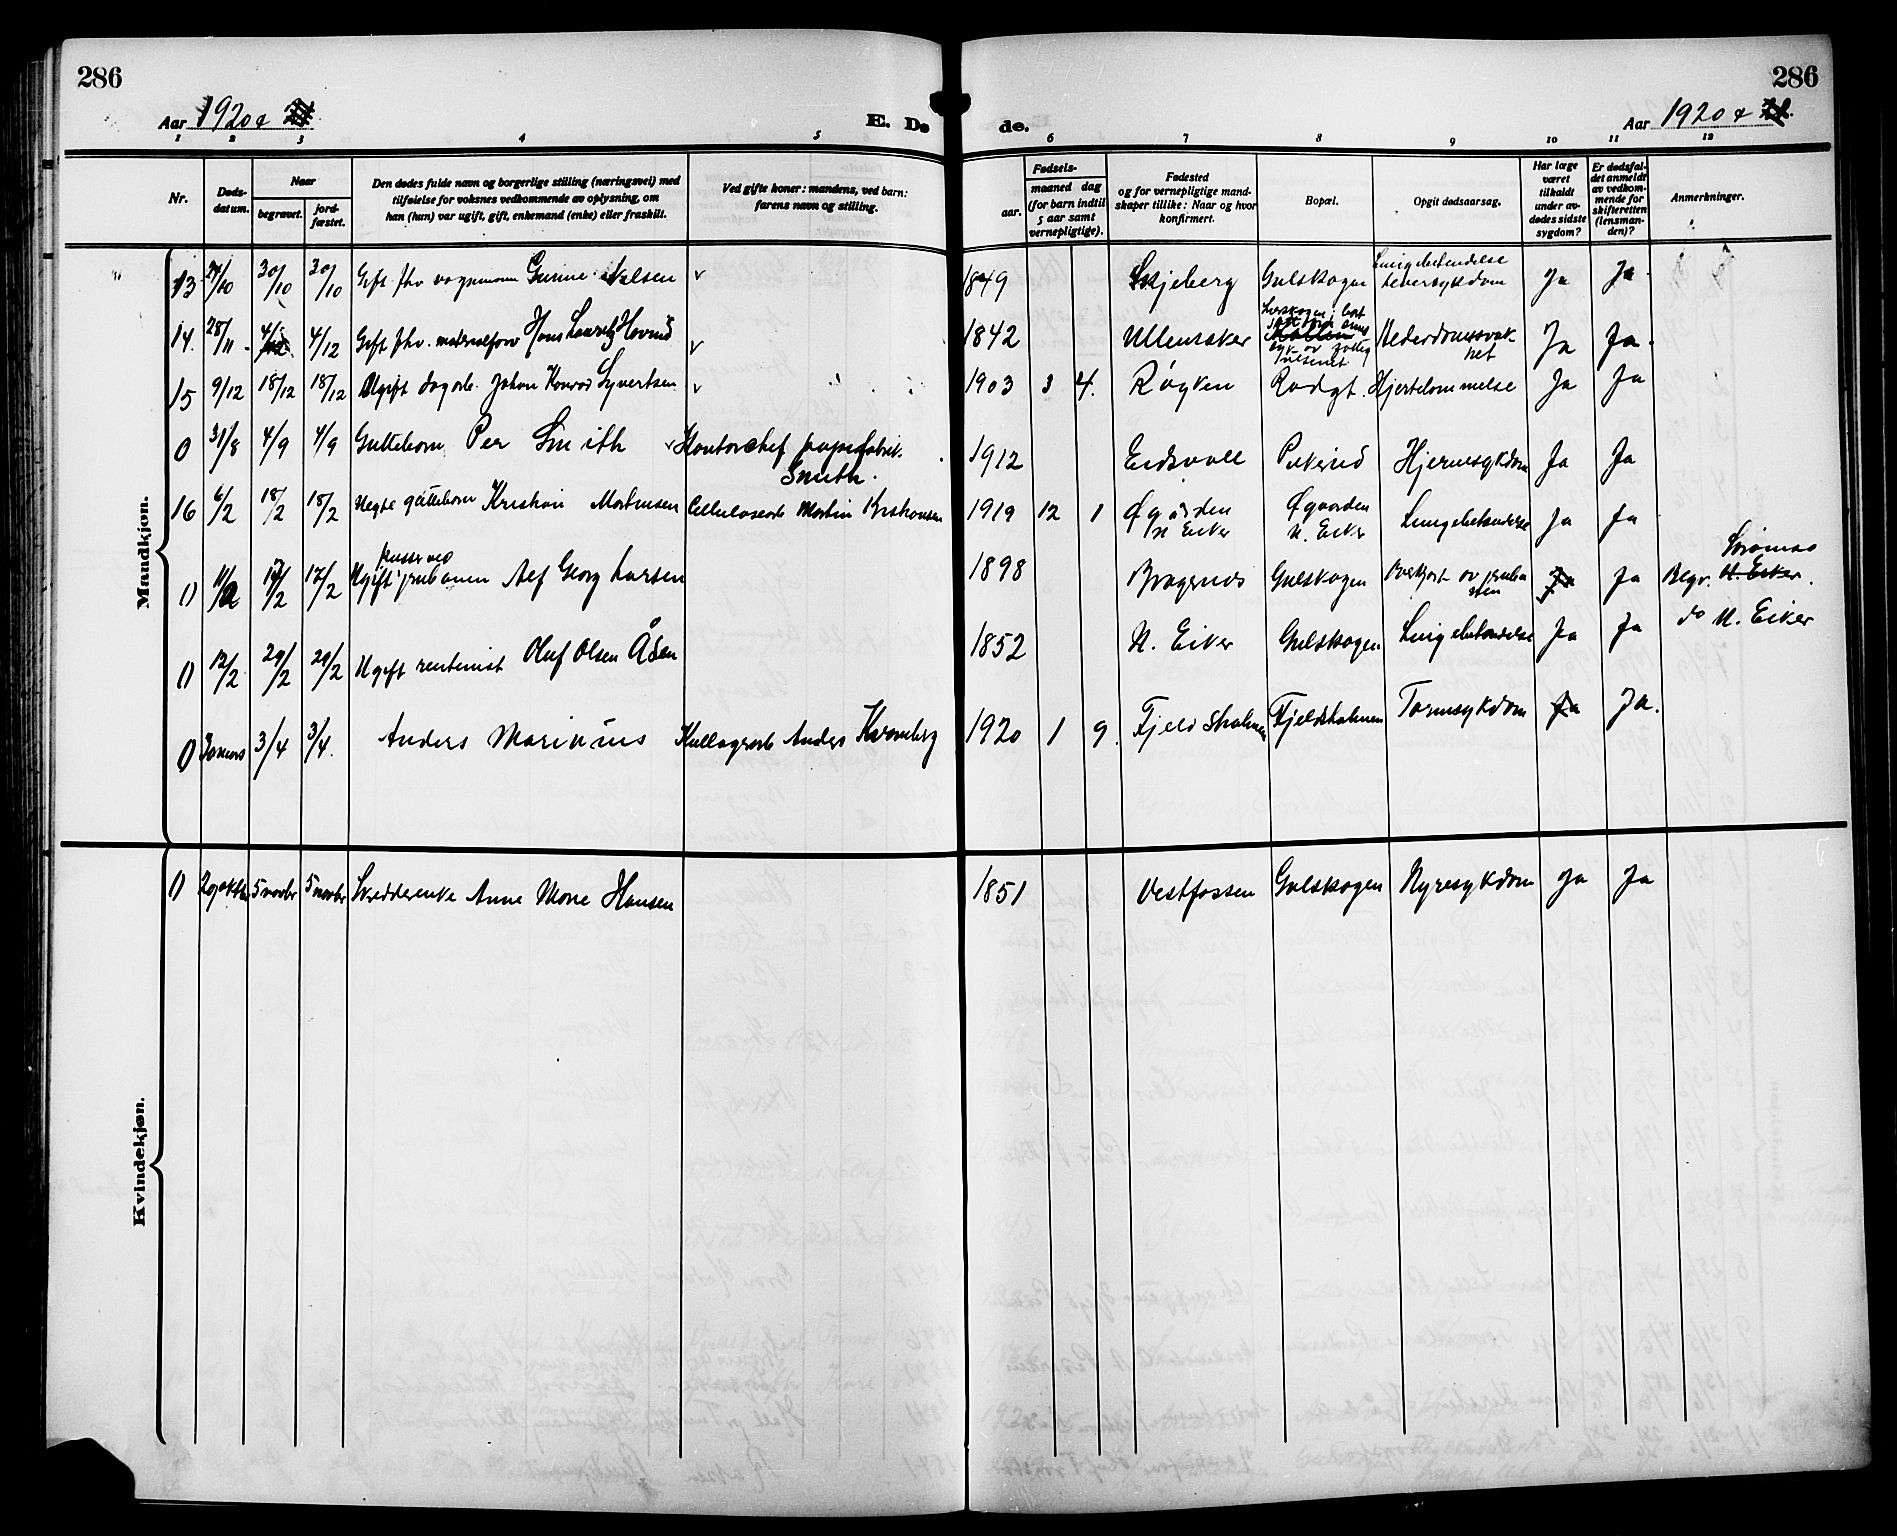 286
Aar 1920 &
E. Dø
1 2 3 4 5
Nr.
Døds-
datum.
Naar
begravet.
jord-
fæstet.
Den dødes fulde navn og borgerlige stilling (næringsvei) med
tilføielse for voksnes vedkommende av oplysning, om
han (hun) var ugift, gift, enkemand (enke) eller fraskilt.
Ved gifte koner: mandens, ved barn:
farens navn og stilling.
Mandkjøn.
13 27/10 30/10 30/10 Gift fhv vognmann Gunne Nilsen v
14. 28/11 4/12 4/12 Gift fhv. Hans Lauritz Hovind v
15 9/12 18/12 18/12 Ugift dagarb. Johan Konrad Syvertsen v
0 31/8 4/9 4/9 Guttebarn Per Smith v Kontorchef papirfabrik.
Smith.
16 6/2 18/2 18/2 Negte guttebarn Kristian Martinsen Cellulosearb Martin Kristiansen
0 11/2 17/2 17/2 Ugift Alf Georg Larsen
0 12/2 20/2 20/2 Ugift rentenist Oluf Olsen Åsen
0 30 mars 3/4 3/4. Anders Marinius Anders Kromberg
Kvindekjøn.
0 29 oktbr 5 novbr 5 novbr Skredderenke Anne Marie Hansen
286
Aar 1920 &
de.
6 7 8 9 10 11 12
Fødsels-
aar.
maaned dag
(for barn indtil
5 aar samt
vernepligtige).
Fødested
og for vernepligtige mand-
skaper tillike: Naar og hvor
konfirmert.
Bopæl.
Opgit dødsaarsag.
Har læge
været
tilkaldt
under av-
dødes sidste
sygdom?
Er dødsfal-
det anmeldt
av vedkom-
mende for
skifteretten
(lensman-
den)?
Anmerkninger.
1849 Skjeberg Gulskogen Lungebetendelse
Leversykdom Ja Ja
1842 Ullensaker Alderdomssvak-
het Ja Ja.
1903 3 4. Røyken Rødgt. Hjertelammelse Ja Ja
1912 Eidsvoll Pukerud Hjernesykdom Ja Ja
1919 12 1 Øgården
N Eiker Øgaarden
N. Eiker Lungebetendelse Ja Ja
1898 Bragernes Gulskogen Ja Ja Begr. N. Eiker.
1852 N. Eiker Gulskogen Lungebetendelse Ja Ja do N. Eiker
1920 1 9. Fjeldsholmen Fjeldsholmen Tarmsykdom Ja Ja.
1851 Vestfossen Gulskogen Nyresykdom Ja Ja